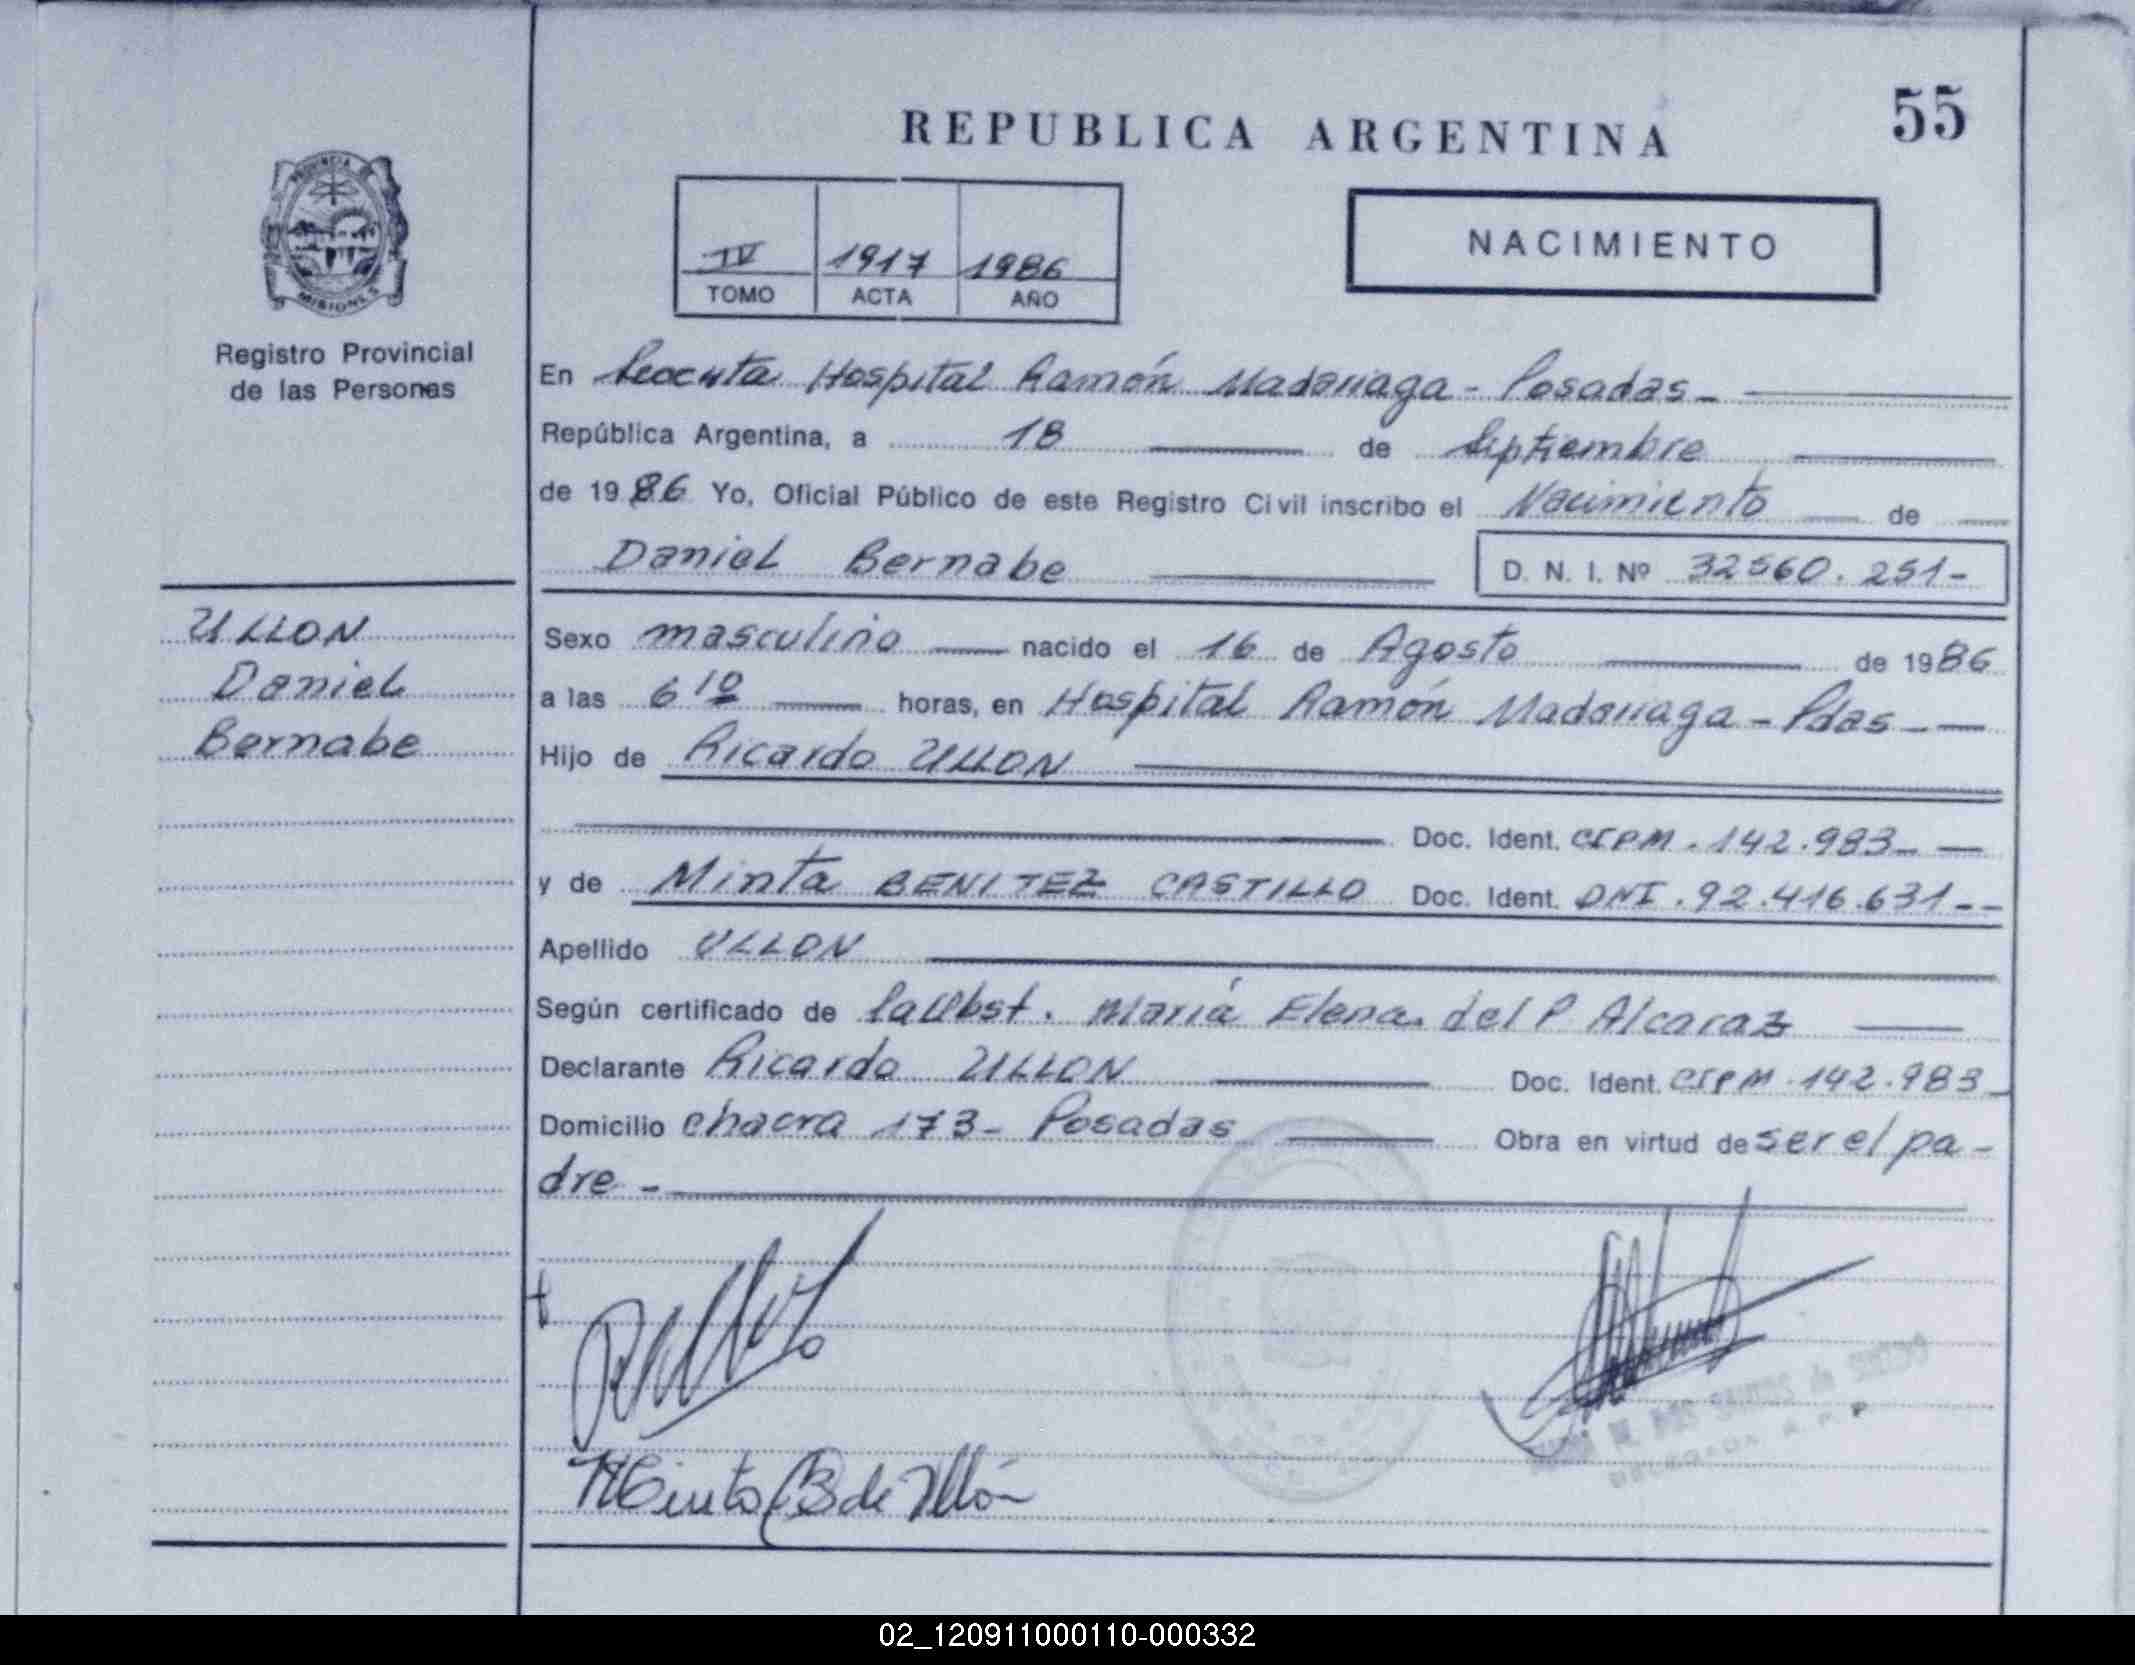 REPUBLICA ARGENTINA
55
PROVINCIA DE
MISIONES
Registro Provincial
de las Personas
IV 1917 1986
TOMO ACTA AÑO
NACIMIENTO
En Hospital Ramón Madariaga - Posadas -
República Argentina, a 18 de Septiembre
de 1986 Yo, Oficial Público de este Registro Civil inscribo el Nacimiento de
Daniel Bernabe D. N. I. Nº 32560.251-
ULLON
Daniel
Bernabe
Sexo masculino nacido el 16 de Agosto de 1986
a las 6 10 horas, en Hospital Ramón Madariaga - Pdas -
Hijo de Ricardo ULLON
Doc. Ident. CIPM. 142.983-
y de Minta BENITEZ CASTILLO Doc. Ident. DNI. 92.416.631--
Apellido ULLON
Según certificado de Obst. María Elena del P Alcaraz
Declarante Ricardo ULLON Doc. Ident. CIPM. 142.983
Domicilio chacra 173- Posadas Obra en virtud de ser el pa-
dre -
B de Ullón
DELEGADA R. P. P
02_120911000110-000332